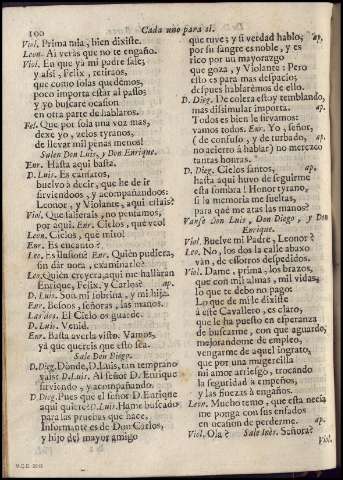 100
Cada uno para sí.
Viol. Prima mia, bien dixiste.
Leon. Ai verás que no te engaño.
Viol. En que yá mi padre sale;
y assi, Felix, retiraos,
que como solas quedèmos,
poco importa estar al passo,
y yo buscaré ocasion
en otra parte de hablaros.
Fel. Que por sola una voz mas,
dexe yo, zelos tyranos,
de llevar mil penas menos!
Salen Don Luis, y Don Enrique.
Enr. Hasta aquì basta.
D. Luis. Es cansaros,
buelvo à decir, que he de ir
sirviendoos, y acompañandoos:
Leonor, y Violante, aqui estais?
Viol. Que salierais, no pensamos,
por aqui. Enr. Cielos, què veo!
Leon. Cielos, què miro!
Enr. Es encanto?
Leo. Es ilusion? Enr. Quièn pudiera,
sin dár nota, examinarlo?
Leo. Quièn creyera, aqui me hallàran
Enrique, Felix, y Carlos? ap.
D. Luis. Son mi sobrina, y mi hija.
Enr. Besoos, señoras, las manos.
Las dos. El Cielo os guarde.
D. Luis. Venid.
Enr. Basta averla visto. Vamos,
yá que quereis que esto sea.
Sale Don Diego.
D. Dieg. Dònde, D. Luis, tan temprano
vais? D. Luis. Al señor D. Enrique
sirviendo, y acompañando.
D. Dieg. Pues que el señor D. Enrique
aqui quiere? D. Luis. Hame buscado
para las pruebas que hace.
Informante es de Don Carlos,
y hijo del mayor amigo
que tuve; y si verdad hablo, ap.
por su sangre es noble, y es
rico por un mayorazgo
que goza, y Violante: Pero
esto es para mas despacio;
despues hablarèmos de ello.
D. Dieg. De colera estoy temblando,
mas dissimular importa. ap.
Todos es bien le sirvamos:
vamos todos. Enr. Yo, señor,
(de confuso, y de turbado, ap.
no acierto à hablar) no merezco
tantas honras.
D. Dieg. Cielos santos, ap.
hasta aqui huvo de seguirme
esta sombra! Honor tyrano,
si la memoria me sueltas,
para què me atas las manos?
Vanse Don Luis, Don Diego, y Don
Enrique.
Viol. Buelve mi Padre, Leonor?
Leo. No, los dos la calle abaxo
vàn, de essotros despedidos.
Viol. Dame, prima, los brazos,
que con mil almas, mil vidas,
lo que te debo no pago:
Lo que de mi le dixiste
à este Cavallero, es claro,
que le ha puesto en esperanza
de buscarme, con que aguardo,
mejorandome de empleo,
vengarme de aquel ingrato,
que por una mugercilla
mi amor arriesgo, trocando
la seguridad à empeños,
y las finezas à engaños.
Leon. Mucho temo, que esta necia
me ponga con sus enfados
en ocasion de perderme. ap.
Viol. Ola? Sale Inès. Señora?
Viol.